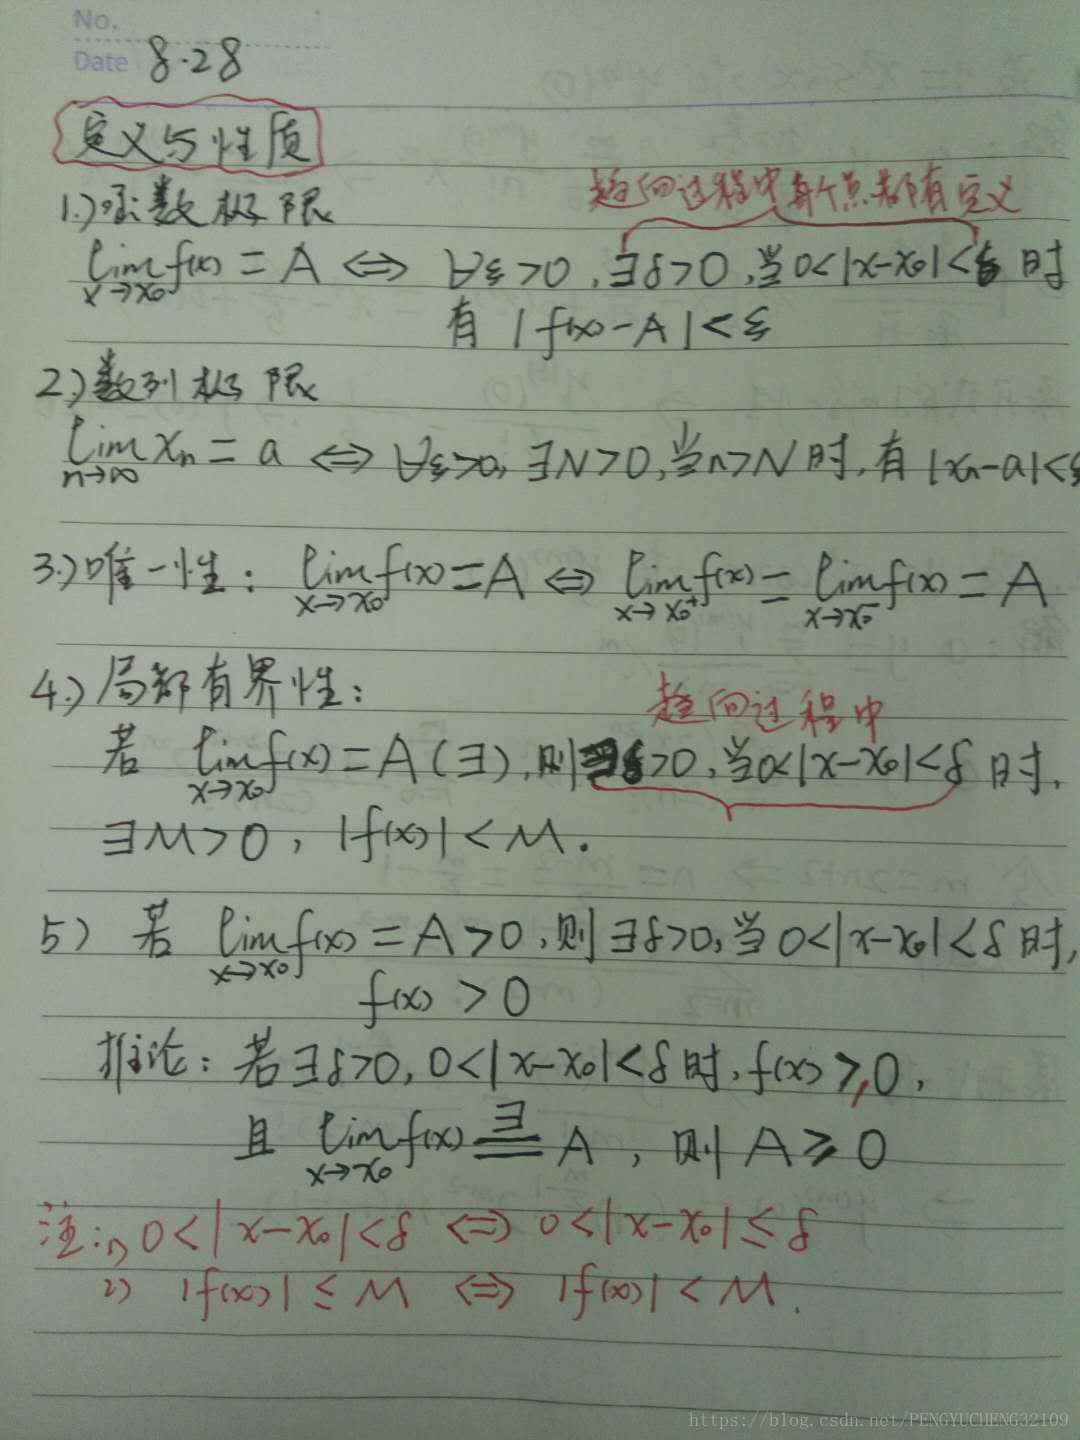 No.
Date 8·28
定义与性质
趋向过程中每个点都有定义
1.)函数极限
lim f(x) = A ⟺ ∀ε>0, ∃δ>0, 当0<|x-x₀|<δ 时
x→x₀
有 |f(x)-A|<ε
2.)数列极限
lim xₙ = a ⟺ ∀ε>0, ∃N>0, 当n>N时, 有|xₙ-a|<ε
n→∞
3.)唯一性: lim f(x)=A ⟺ lim f(x) = lim f(x) = A
x→x₀ x→x₀⁺ x→x₀⁻
4.)局部有界性:
趋向过程中
若 lim f(x)=A(∃), 则∃δ>0, 当0<|x-x₀|<δ 时,
x→x₀
∃M>0, |f(x)|<M.
5) 若 lim f(x) = A>0, 则∃δ>0, 当0<|x-x₀|<δ时,
x→x₀
f(x) > 0
推论: 若∃δ>0, 0<|x-x₀|<δ时, f(x)≥0,
且 lim f(x) ∃= A, 则 A≥0
x→x₀
注: 1) 0<|x-x₀|<δ ⟺ 0<|x-x₀|≤δ
2) |f(x)|≤M ⟺ |f(x)|<M.
https://blog.csdn.net/PENGYUCHENG32109